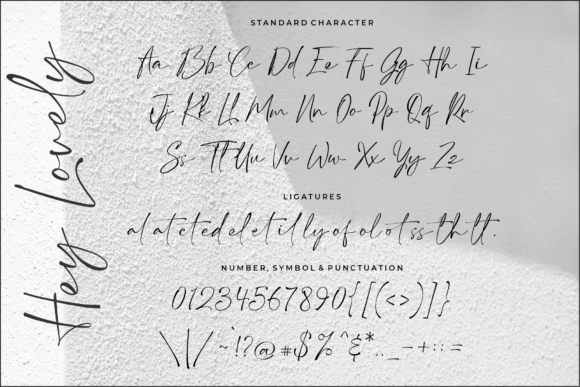 Hey Lovely
STANDARD CHARACTER
Aa Bb Cc Dd Ee Ff Gg Hh Ii
Jj Kk Ll Mm Nn Oo Pp Qq Rr
Ss Tt Uu Vv Ww Xx Yy Zz
LIGATURES
al at ct ed el et il ly of ol ot ss th tt.
NUMBER, SYMBOL & PUNCTUATION
01234567890{[(<>)]}
\|/~`!?@#$%^&*.,_-+:;=